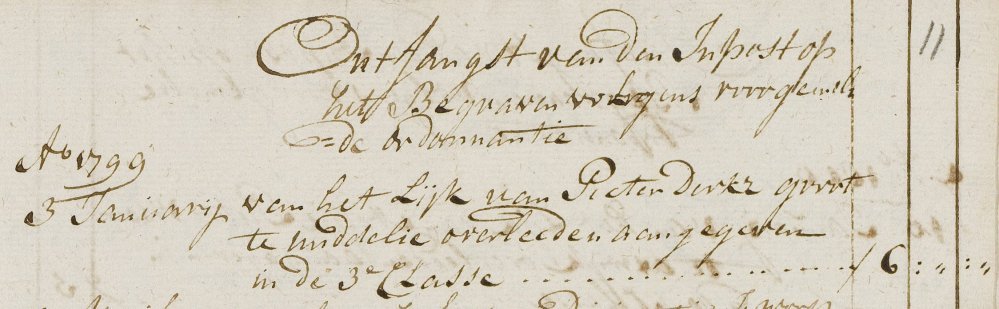 Ontfangst van den Inpost op 11
het Begraven volgens voorgemel
=de ordonnantie
Ao 1799
3 Januarij van het Lijk van Pieter Dirkz groot
te middelie overleeden aangegeven
in de 3e Classe .................... f 6:":"